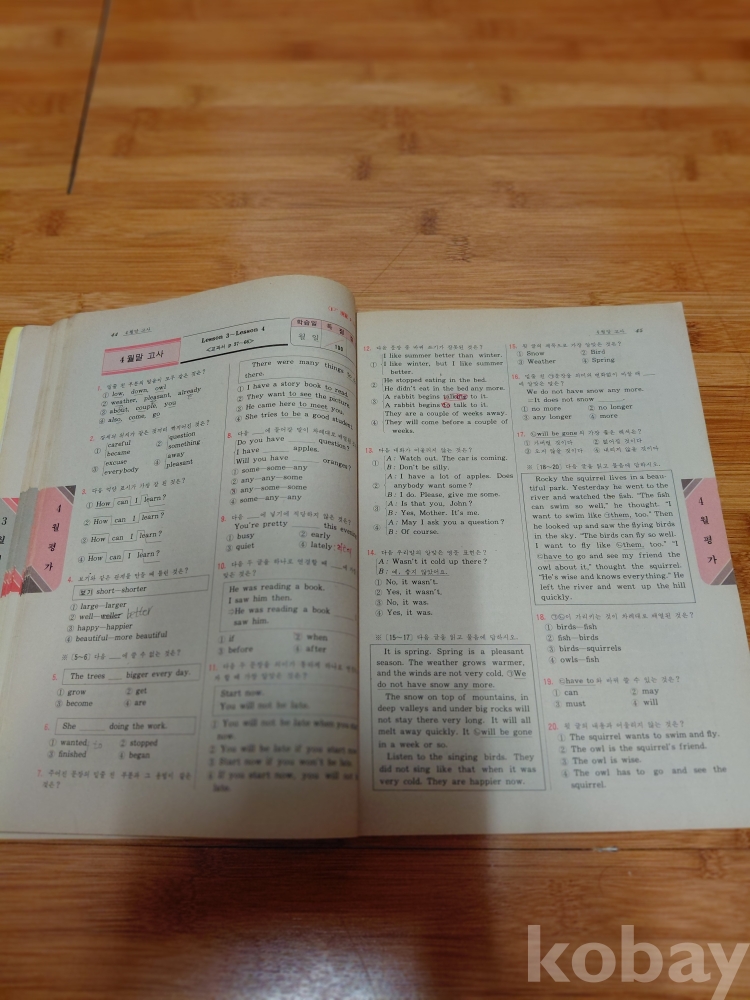 44
4월말 고사
Lesson 3—Lesson 4
<교과서 p 37~66>
학습일
월 일
100
1. 밑줄 친 부분의 발음이 모두 같은 것은?
① low, down, owl
② weather, pleasant, already
③ about, couple, you
④ also, come, go
2.
① careful
② question
became
something
③ excuse
④ away
everybody
pleasant
3. 다음 어떤 보기가 가장 잘 된 것은?
① How can I learn?
② How can I learn?
③ How can I learn?
④ How can I learn?
4. 보기와 같은 관계를 만들 때 틀린 것은?
보기 short—shorter
① large—larger
② well—weller better
③ happy—happier
④ beautiful—more beautiful
※ [5~6] 다음 ___에 쓸 수 없는 것은?
5. The trees ___ bigger every day.
① grow
② get
③ become
④ are
6. She ___ doing the work.
① wanted
② stopped
③ finished
④ began
7. 주어진 문장의 밑줄 친 부분과 그 용법이 같은
것은?
There were many things
there.
① I have a story book to read.
② They want to see the picture
③ He came here to meet you.
④ She tries to be a good student
8.
Do you have ___ question?
I have ___ apples.
Will you have ___ oranges?
① some—some—any
② any—any—some
③ any—some—some
④ some—any—any
9. 다음 ___에 넣기에 적당하지 않은 것은?
You're pretty ___ this evening
① busy
② early
③ quiet
④ lately
10. 다음 두 글을 하나로 연결할 때
He was reading a book.
I saw him then.
=He was reading a book ___
saw him.
① if
② when
③ before
④ after
11.
Start now.
You will not be late.
① You will not be late when you start
now.
② You will be late if you start now
③ Start now if you won't be late.
④ If you start now, you will not be
late.
4
월
평
가
4월말 고사 45
12. 다음 문장 중 바꿔 쓰기가 잘못된 것은?
① I like summer better than winter.
I like winter, but I like summer
better.
② He stopped eating in the bed.
He didn't eat in the bed any more.
③ A rabbit begins talking to it.
A rabbit begins to talk to it.
④ They are a couple of weeks away.
They will come before a couple of
weeks.
13. 다음 대화가 어울리지 않는 것은?
① A: Watch out. The car is coming.
B: Don't be silly.
② A: I have a lot of apples. Does
anybody want some?
B: I do. Please, give me some.
③ A: Is that you, John?
B: Yes, Mother. It's me.
④ A: May I ask you a question?
B: Of course.
14. 다음 우리말의 알맞은 영문 표현은?
A: Wasn't it cold up there?
B: 예, 춥지 않았어요.
① No, it wasn't.
② Yes, it wasn't.
③ No, it was.
④ Yes, it was.
※ [15~17] 다음 글을 읽고 물음에 답하시오.
It is spring. Spring is a pleasant
season. The weather grows warmer,
and the winds are not very cold. ㉠We
do not have snow any more.
The snow on top of mountains, in
deep valleys and under big rocks will
not stay there very long. It will all
melt away quickly. It ㉡will be gone
in a week or so.
Listen to the singing birds. They
did not sing like that when it was
very cold. They are happier now.
15. 윗 글의 제목으로 가장 알맞은 것은?
① Snow
② Bird
③ Weather
④ Spring
16. 밑줄 친 ㉠문장을 의미의 변화없이 바꿀 때 ___
에 알맞은 말은?
We do not have snow any more.
=It does not snow ___.
① no more
② no longer
③ any longer
④ more
17. ㉡will be gone의 가장 좋은 해석은?
① 사라질 것이다
② 없어질 것이다
③ 오지 않을 것이다
④ 내리지 않을 것이다
※ [18~20] 다음 글을 읽고 물음에 답하시오.
Rocky the squirrel lives in a beau-
tiful park. Yesterday he went to the
river and watched the fish. "The fish
can swim so well," he thought. "I
want to swim like ㉠them, too." Then
he looked up and saw the flying birds
in the sky. "The birds can fly so well.
I want to fly like ㉡them, too." "I
㉢have to go and see my friend the
owl about it," thought the squirrel.
"He's wise and knows everything." He
left the river and went up the hill
quickly.
18. ㉠㉡이 가리키는 것이 차례대로 배열된 것은?
① birds—fish
② fish—birds
③ birds—squirrels
④ owls—fish
19. ㉢have to와 바꿔 쓸 수 있는 것은?
① can
② may
③ must
④ will
20. 윗 글의 내용과 어울리지 않는 것은?
① The squirrel wants to swim and fly.
② The owl is the squirrel's friend.
③ The owl is wise.
④ The owl has to go and see the
squirrel.
4
월
평
가
kobay